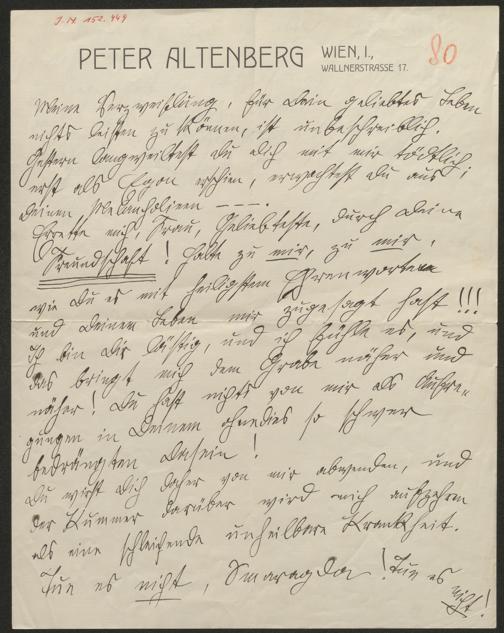 J.N. 152.449
PETER ALTENBERG WIEN, I.,
WALLNERSTRASSE 17.
80
Meine Verzweiflung, für Dein geliebtes Leben
nichts leisten zu können, ist unbeschreiblich.
Gestern langweiltest Du Dich mit mir tödtlich;
erst als Egon erschien, erwachtest Du aus
Deinen Melancholieen — — —.
Errette mich, Frau, Geliebteste, durch Deine
Freundschaft! Halte zu mir, zu mir,
wie Du es mit heiligsten Ehrenworten
und Deinem Leben mir zugesagt hast!!!
Ich bin Dir lästig, und ich fühle es, und
das bringt mich dem Grabe näher und
näher! Du hast nichts von mir als Aufre-
gungen in Deinem ohnedies so schwer
bedrängten Dasein!
Du wirst Dich daher von mir abwenden, und
der Kummer darüber wird mich aufzehren
als eine schleifende unheilbare Krankheit.
Tue es nicht, Smaragda! Tue es
nicht!